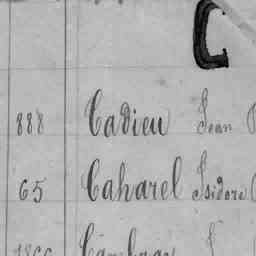 C
888 Cadieu Jean
65 Caharel Isidore